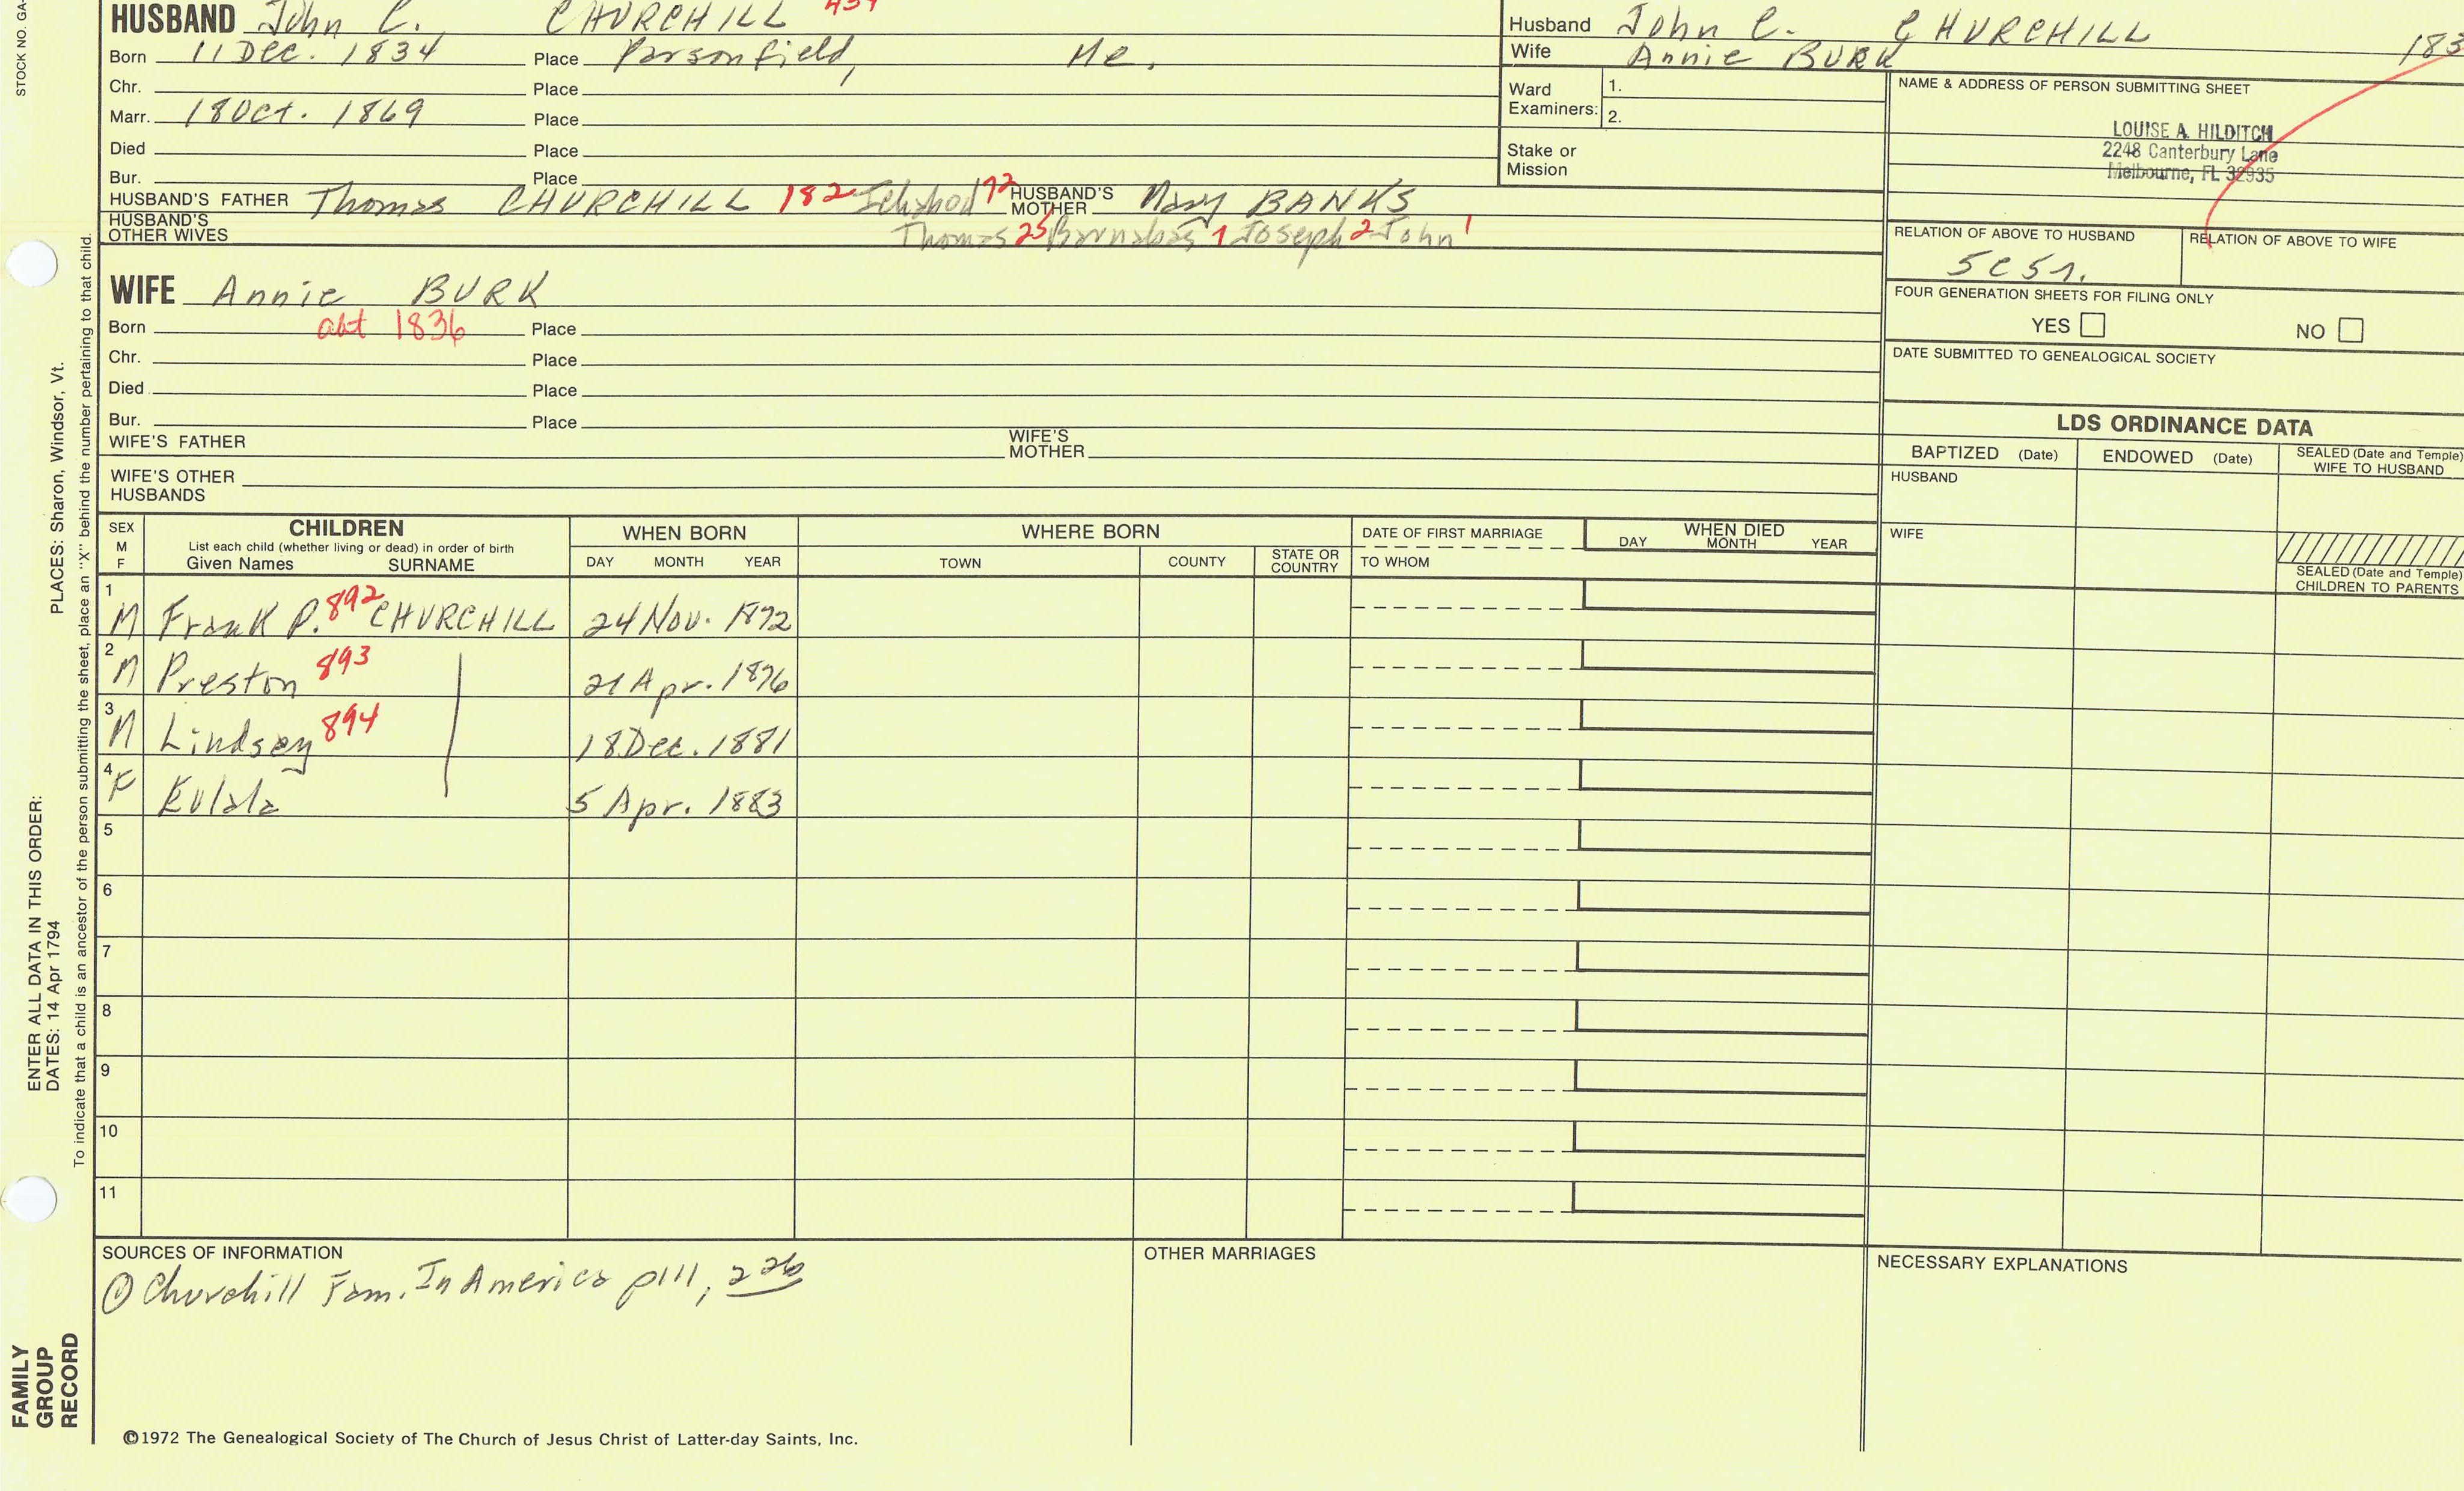 STOCK NO. GA-
HUSBAND John C. CHURCHILL
Born 11 Dec. 1834 Place Parsonfield, Me.
Chr. Place
Marr. 18 Oct. 1869 Place
Died Place
Bur. Place
HUSBAND'S FATHER Thomas CHURCHILL 182 Ichabod 72 HUSBAND'S MOTHER Mary BANKS
HUSBAND'S OTHER WIVES Thomas 25 Barnabas 7 Joseph 2 John 1
WIFE Annie BURK
Born abt 1836 Place
Chr. Place
Died Place
Bur. Place
WIFE'S FATHER WIFE'S MOTHER
WIFE'S OTHER HUSBANDS
Husband John C. CHURCHILL 183
Wife Annie BURK
Ward Examiners: 1.
2.
Stake or Mission
NAME & ADDRESS OF PERSON SUBMITTING SHEET
LOUISE A. HILDITCH
2248 Canterbury Lane
Melbourne, FL 32935
RELATION OF ABOVE TO HUSBAND RELATION OF ABOVE TO WIFE
5c5r.
FOUR GENERATION SHEETS FOR FILING ONLY
YES NO
DATE SUBMITTED TO GENEALOGICAL SOCIETY
LDS ORDINANCE DATA
BAPTIZED (Date) ENDOWED (Date) SEALED (Date and Temple) WIFE TO HUSBAND
HUSBAND
WIFE
SEALED (Date and Temple) CHILDREN TO PARENTS
SEX M F CHILDREN WHEN BORN WHERE BORN DATE OF FIRST MARRIAGE WHEN DIED
List each child (whether living or dead) in order of birth
Given Names SURNAME DAY MONTH YEAR TOWN COUNTY STATE OR COUNTRY TO WHOM DAY MONTH YEAR
1 M Frank P. 892 CHURCHILL 24 Nov. 1872
2 M Preston 893 21 Apr. 1876
3 M Lindsey 894 18 Dec. 1881
4 F Eulala 5 Apr. 1883
5
6
7
8
9
10
11
SOURCES OF INFORMATION OTHER MARRIAGES NECESSARY EXPLANATIONS
① Churchill Fam. In America p111, 226
©1972 The Genealogical Society of The Church of Jesus Christ of Latter-day Saints, Inc.
FAMILY GROUP RECORD
ENTER ALL DATA IN THIS ORDER:
DATES: 14 Apr 1794
PLACES: Sharon, Windsor, Vt.
To indicate that a child is an ancestor of the person submitting the sheet, place an "X" behind the number pertaining to that child.